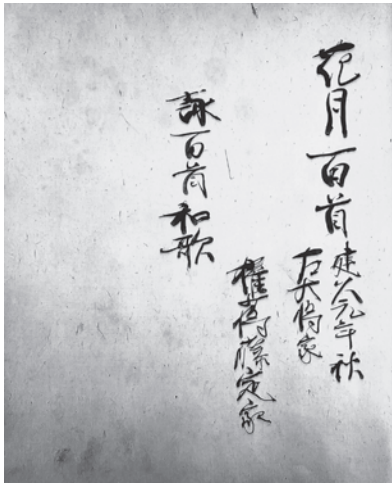 花月百首
建久元年秋
左大将家
權少将藤定家
詠百首和歌